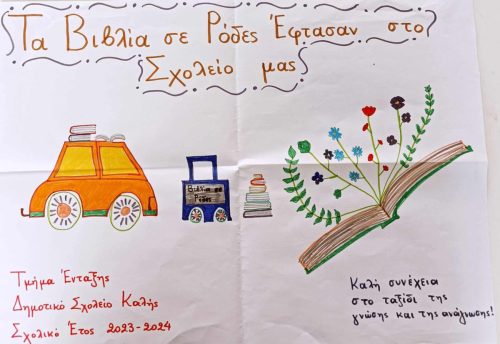 Τα Βιβλία σε Ρόδες Έφτασαν στο
Σχολείο μας
Βιβλία σε
Ρόδες
Τμήμα Ένταξης
Δημοτικό Σχολείο Καλής
Σχολικό Έτος 2023-2024
Καλή συνέχεια
στο ταξίδι της
γνώσης και της ανάγνωσης!